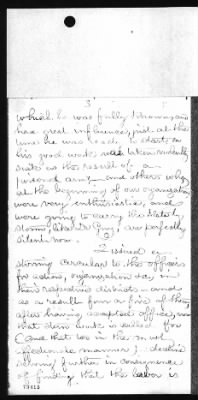 3
which he was fully known, and
has great influence, just at the
time he was ready to start on
his good work, was taken suddenly
as the result of a
wound, and others who
at the beginning of our organization
were very enthusiastic, and
were going to carry the State by
storm, like Dr Guy, are perfectly
silent now.
I issued a
stirring circular to the officers
for action, organization &c, in
their respective districts, and
as a result from a five of them,
after having accepted office, now
that their work is called for
(and that too in the most
manner) decline
serving further in consequence
of finding that the labor is